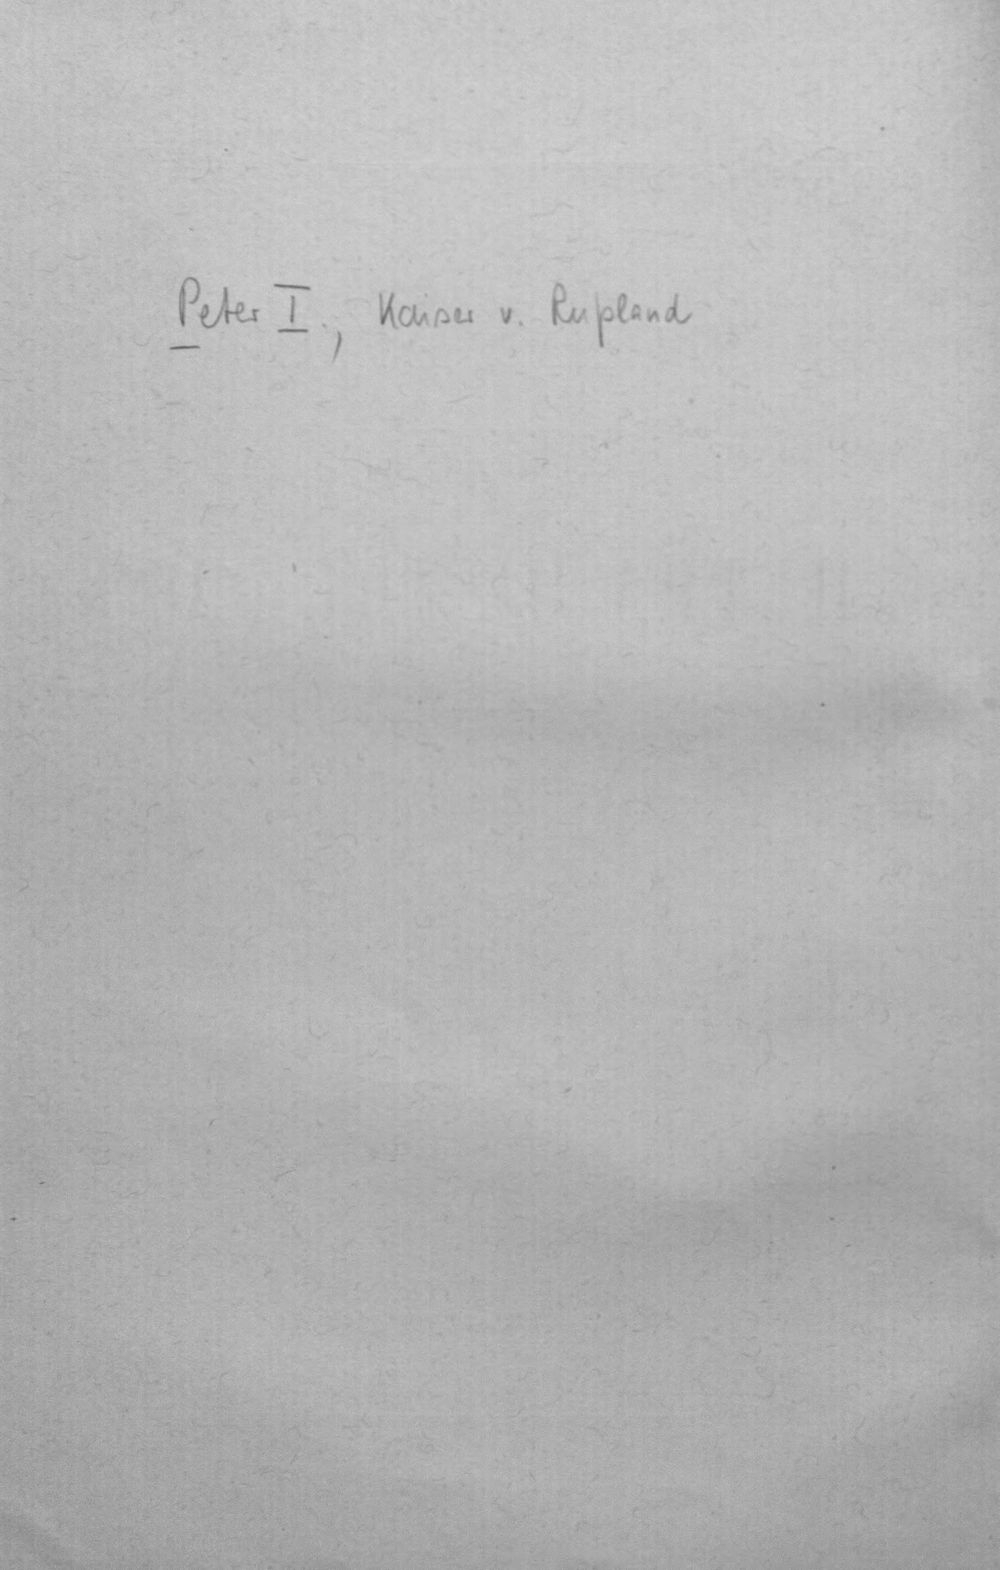 Peter I., Kaiser v. Rußland